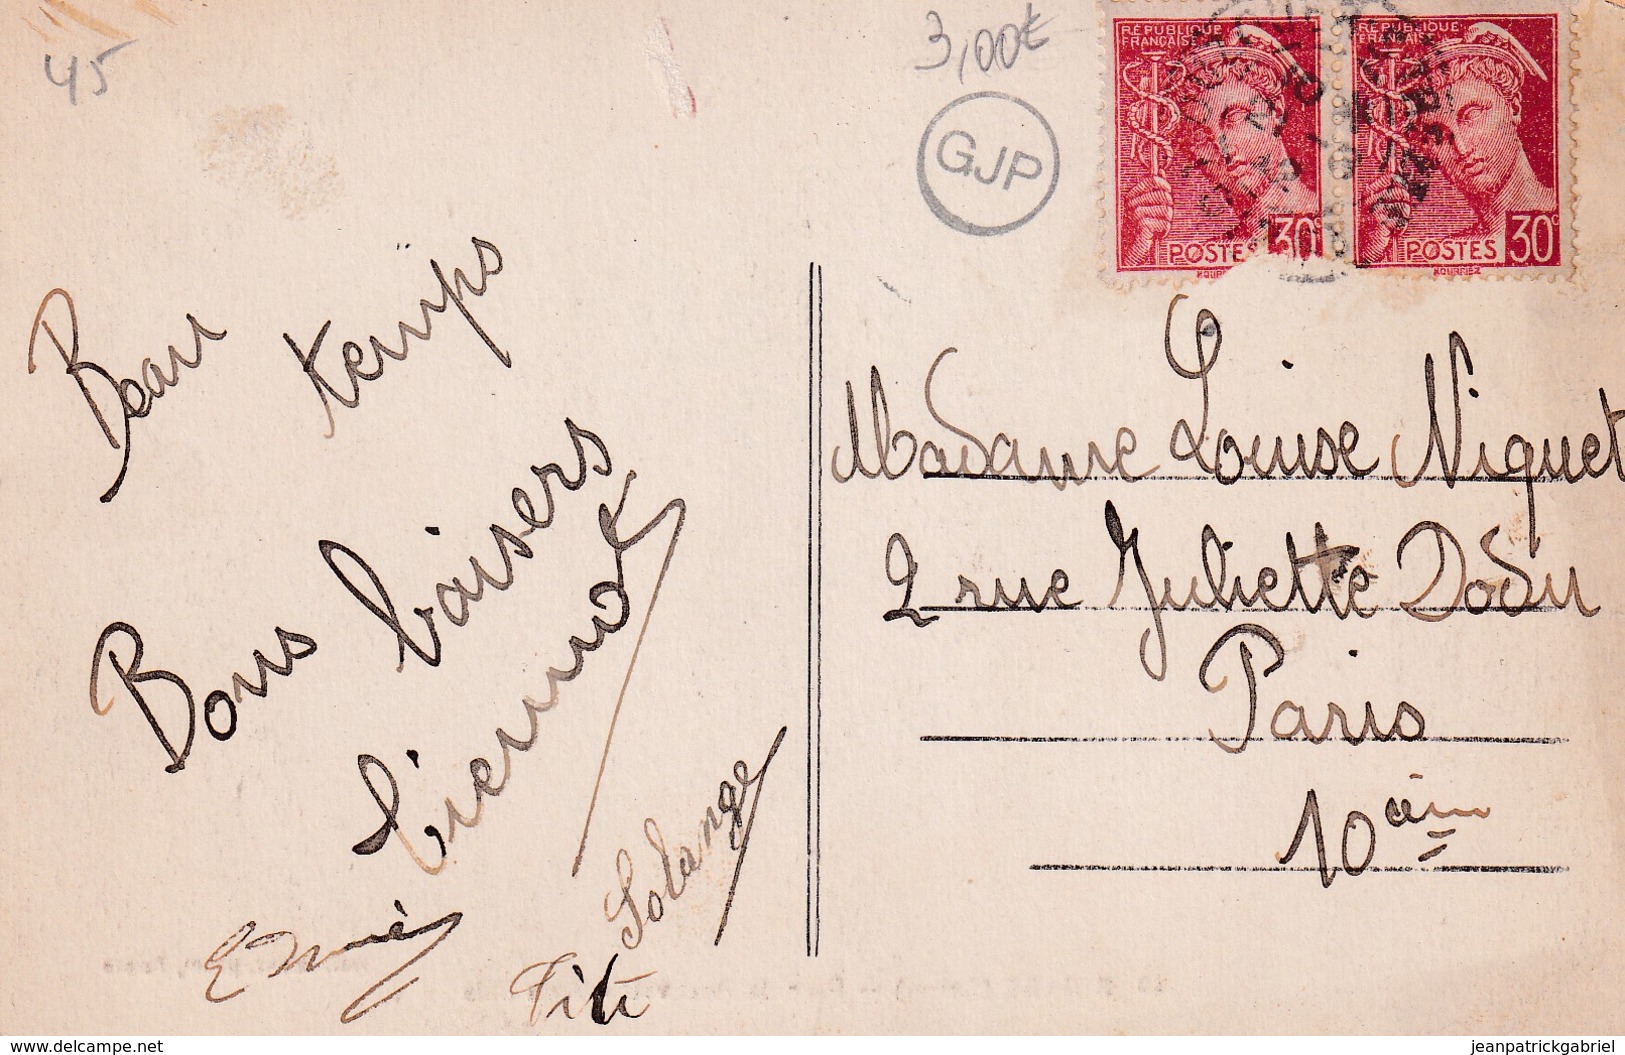 45
3,00€
GJP
RÉPUBLIQUE FRANÇAISE
POSTES 30c
RÉPUBLIQUE FRANÇAISE
POSTES 30c
Beau temps
Bons baisers
Solange
Titi
Madame Louise Niquet
2 rue Juliette Dodu
Paris
10ième
www.delcampe.net
jeanpatrickgabriel